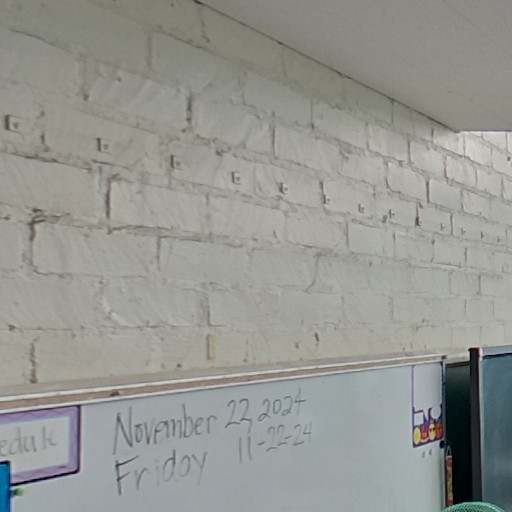 edule
November 22, 2024
Friday 11-22-24